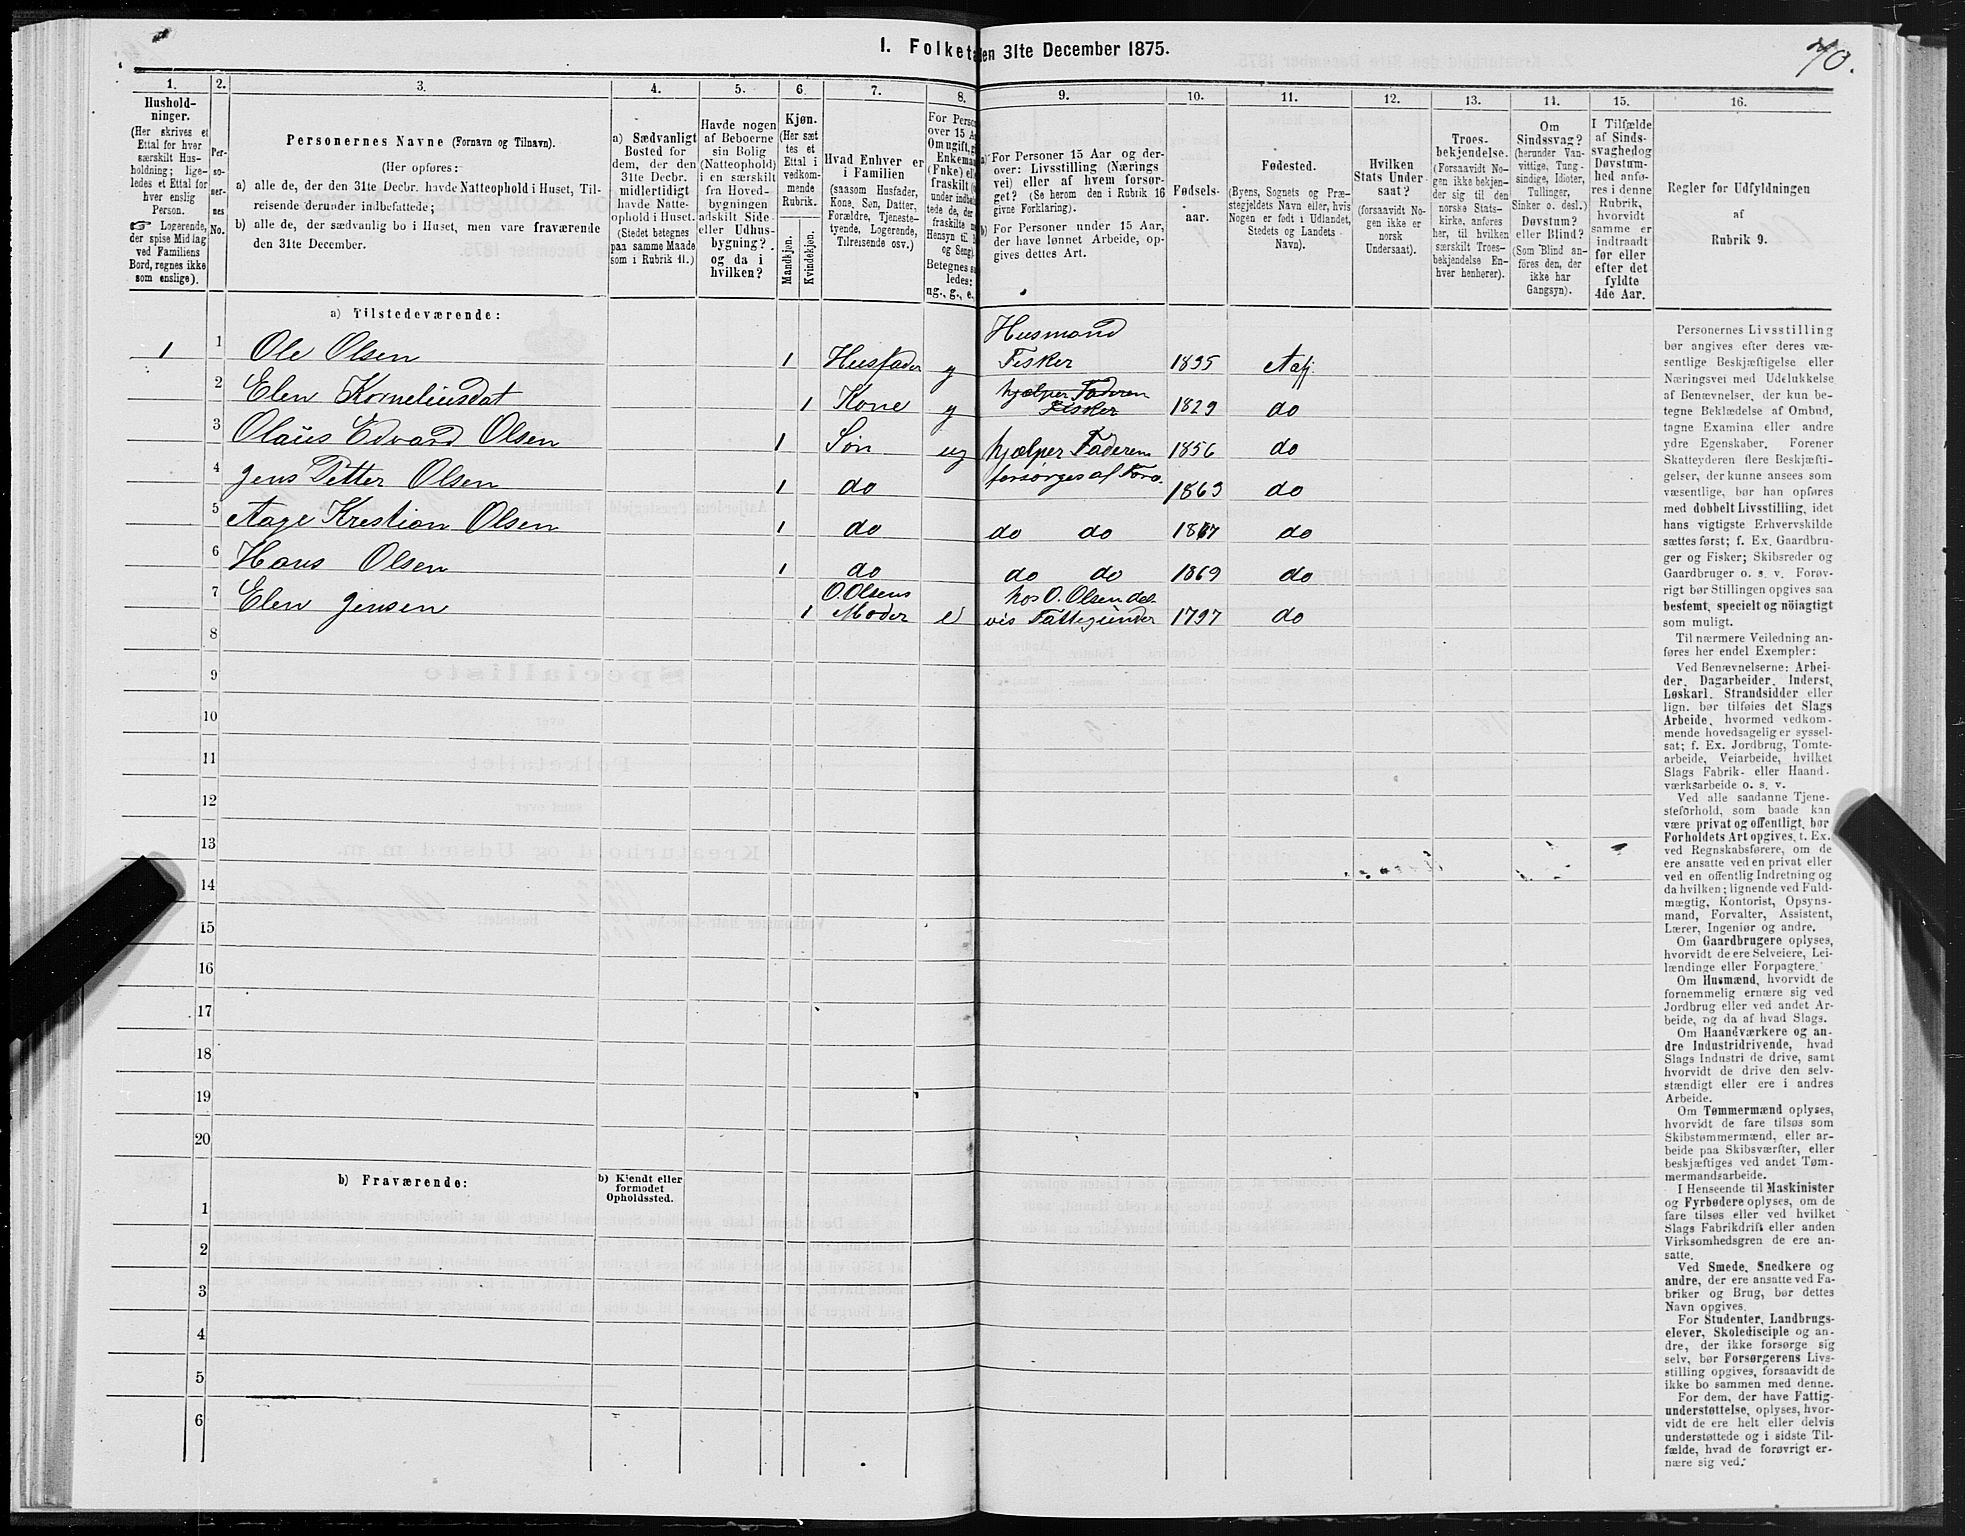 70.
I. Folketa en 31te December 1875.
1. 2. 3. 4. 5. 6. 7. 8. 9. 10. 11. 12. 13. 14. 15. 16.
Hushold-
ninger.
(Her skrives et
Ettal for hver
særskilt Hus-
holdning; lige-
ledes et Ettal for
hver enslig
Person.
☞ Logerende,
der spise Middag
ved Familiens
Bord, regnes ikke
som enslige).
Per-
so-
ner-
nes
No.
Personernes Navne (Fornavn og Tilnavn).
(Her opføres:
a) alle de, der den 31te Decbr. havde Natteophold i Huset, Til-
reisende derunder indbefattede;
b) alle de, der sædvanlig bo i Huset, men vare fraværende
den 31te December.
a) Sædvanligt
Bosted for
dem, der den
31te Decbr.
midlertidigt
havde Natte-
ophold i Huset.
(Stedet betegnes
paa samme Maade
som i Rubrik 11.)
Havde nogen
af Beboerne
sin Bolig
(Natteophold)
i en særskilt
fra Hoved-
bygningen
adskilt Side-
eller Udhus-
bygning?
og da i
hvilken?
Kjøn.
(Her sæt-
tes et
Ettal i
vedkom-
mende
Rubrik.
Mandkjøn.
Kvindekjøn.
Hvad Enhver er
i Familien
(saasom Husfader,
Kone, Søn, Datter,
Forældre, Tjeneste-
tyende, Logerende,
Tilreisende osv.)
For Perso
over 15 Aa
Om ugift, g
Enkeman
(Fnke) ell
fraskilt (
under indbe
tede de, der
fraskilte
Hensyn til B
og Seng).
Betegnes sa
ledes:
ug., g., e.,
a) For Personer 15 Aar og der-
over: Livsstilling (Nærings
vei) eller af hvem forsør-
get? (Se herom den i Rubrik 16
givne Forklaring).
b) For Personer under 15 Aar,
der have lønnet Arbeide, op-
gives dettes Art.
Fødsels-
aar.
Fødested.
(Byens, Sognets og Præ-
stegjeldets Navn eller, hvis
Nogen er født i Udlandet,
Stedets og Landets
Navn).
Hvilken
Stats Under
saat?
(forsaavidt No-
gen ikke er
norsk
Undersaat).
Troes-
bekjendelse.
(Forsaavidt No-
gen ikke bekjen-
der sig til den
norske Stats-
kirke, anføres
her, til hvilken
særskilt Troes-
bekjendelse En-
hver henhører).
Om
Sindssvag?
(herunder Van-
vittige, Tung-
sindige, Idioter,
Tullinger,
Sinker o. desl.)
Døvstum?
eller Blind?
(Som Blind an-
føres den, der
ikke har
Gangsyn).
I Tilfælde
af Sinds-
svaghed og
Døvstum-
hed anfø-
res i denne
Rubrik,
hvorvidt
samme er
indtraadt
før eller
efter det
fyldte
4de Aar.
Regler for Udfyldningen
af
Rubrik 9.
a) Tilstedeværende:
1 1 Ole Olsen 1 Husfader g Husmand Fisker 1835 Aafj.
2 Elen Korneliusdat 1 Kone g hjælper Faderen Fisker 1829 do
3 Olaüs Edvard Olsen 1 Søn ug hjælper Faderen 1856 do
4 Jens Petter Olsen 1 do forsørges af For. 1863 do
5 Aage Krestian Olsen 1 do do do 1867 do
6 Hans Olsen 1 do do do 1869 do
7 Elen Jensen 1 O. Olsens Moder e hos O. Olsen del- vis Fattigunder 1797 do
8
9
10
11
12
13
14
15
16
17
18
19
20
b) Fraværende:
b) Kjendt eller
formodet
Opholdssted.
1
2
3
4
5
6
Personernes Livsstilling
bør angives efter deres væ-
sentlige Beskjæftigelse eller
Næringsvei med Udelukkelse
af Benævnelser, der kun be-
tegne Beklædelse af Ombud,
tagne Examina eller andre
ydre Egenskaber. Forener
Skatteyderen flere Beskjæfti-
gelser, der kunne ansees som
væsentlige, bør han opføres
med dobbelt Livsstilling, idet
hans vigtigste Erhvervskilde
sættes først; f. Ex. Gaardbru-
ger og Fisker; Skibsreder og
Gaardbruger o. s. v. Forøv-
rigt bør Stillingen opgives saa
bestemt, specielt og nöiagtigt
som muligt.
Til nærmere Veiledning an-
føres her endel Exempler:
Ved Benævnelserne: Arbei-
der, Dagarbeider, Inderst,
Løskarl, Strandsidder eller
lign. bør tilføies det Slags
Arbeide, hvormed vedkom-
mende hovedsagelig er syssel-
sat; f. Ex. Jordbrug, Tomte-
arbeide, Veiarbeide, hvilket
Slags Fabrik- eller Haand-
værksarbeide o. s. v.
Ved alle saadanne Tjene-
steforhold, som baade kan
være privat og offentligt, bør
Forholdets Art opgives, t. Ex.
ved Regnskabsførere, om de
ere ansatte ved en privat eller
ved en offentlig Indretning og
da hvilken; lignende ved Fuld-
mægtig, Kontorist, Opsyns-
mand, Forvalter, Assistent,
Lærer, Ingeniør og andre.
Om Gaardbrugere oplyses,
hvorvidt de ere Selveiere, Lei-
lændinge eller Forpagtere.
Om Husmænd, hvorvidt de
fornemmelig ernære sig ved
Jordbrug eller ved andet Ar-
beide, og da af hvad Slags.
Om Haandværkere og an-
dre Industridrivende, hvad
Slags Industri de drive, samt
hvorvidt de drive den selv-
stændigt eller ere i andres
Arbeide.
Om Tømmermænd oplyses,
hvorvidt de fare tilsøs som
Skibstømmermænd, eller ar-
beide paa Skibsværfter, eller
beskjæftiges ved andet Tøm-
mermandsarbeide.
I Henseende til Maskinister
og Fyrbødere oplyses, om de
fare tilsøs eller ved hvilket
Slags Fabrikdrift eller anden
Virksomhedsgren de ere an-
satte.
Ved Smede, Snedkere og
andre, der ere ansatte ved Fa-
briker og Brug, bør dettes
Navn opgives.
For Studenter, Landbrugs-
elever, Skoledisciple og an-
dre, der ikke forsørge sig
selv, bør Forsørgerens Livs-
stilling opgives, forsaavidt de
ikke bo sammen med denne.
For dem, der have Fattig-
understøttelse, oplyses, hvor-
vidt de ere helt eller delvis
understøttede og i sidste Til-
fælde, hvad de forøvrigt er-
nære sig ved.